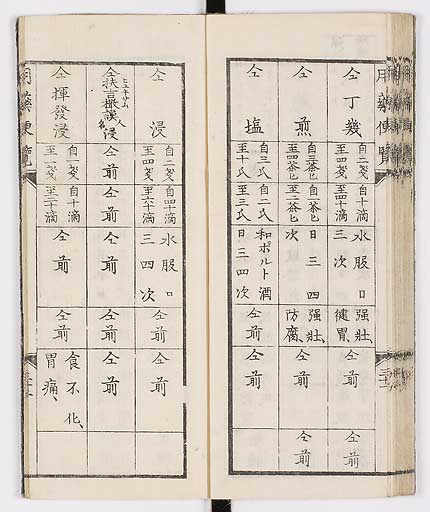 用藥便覽
仝丁幾
自二戔
至四戔
自二十滴
至四十滴
水服日
三次
强壯、
健胃、
仝前
仝前
仝煎
自三茶匕
至四茶匕
自一茶匕
至二茶匕
日三四
次
强壯、
防腐、
仝前
仝前
仝塩
自三氏
至十氏
自二氏
至三氏
和ポルト酒
日三四次
仝前
仝前
三十
仝浸
自二戔
至四戔
自四十滴
至六十滴
水服日
三四次
仝前
仝前
仝前
仝前
仝前
仝前
仝前
仝揮發浸
自一戔
至二戔
自十滴
至二十滴
仝前
仝前
食不化、
胃痛、
用藥便覽